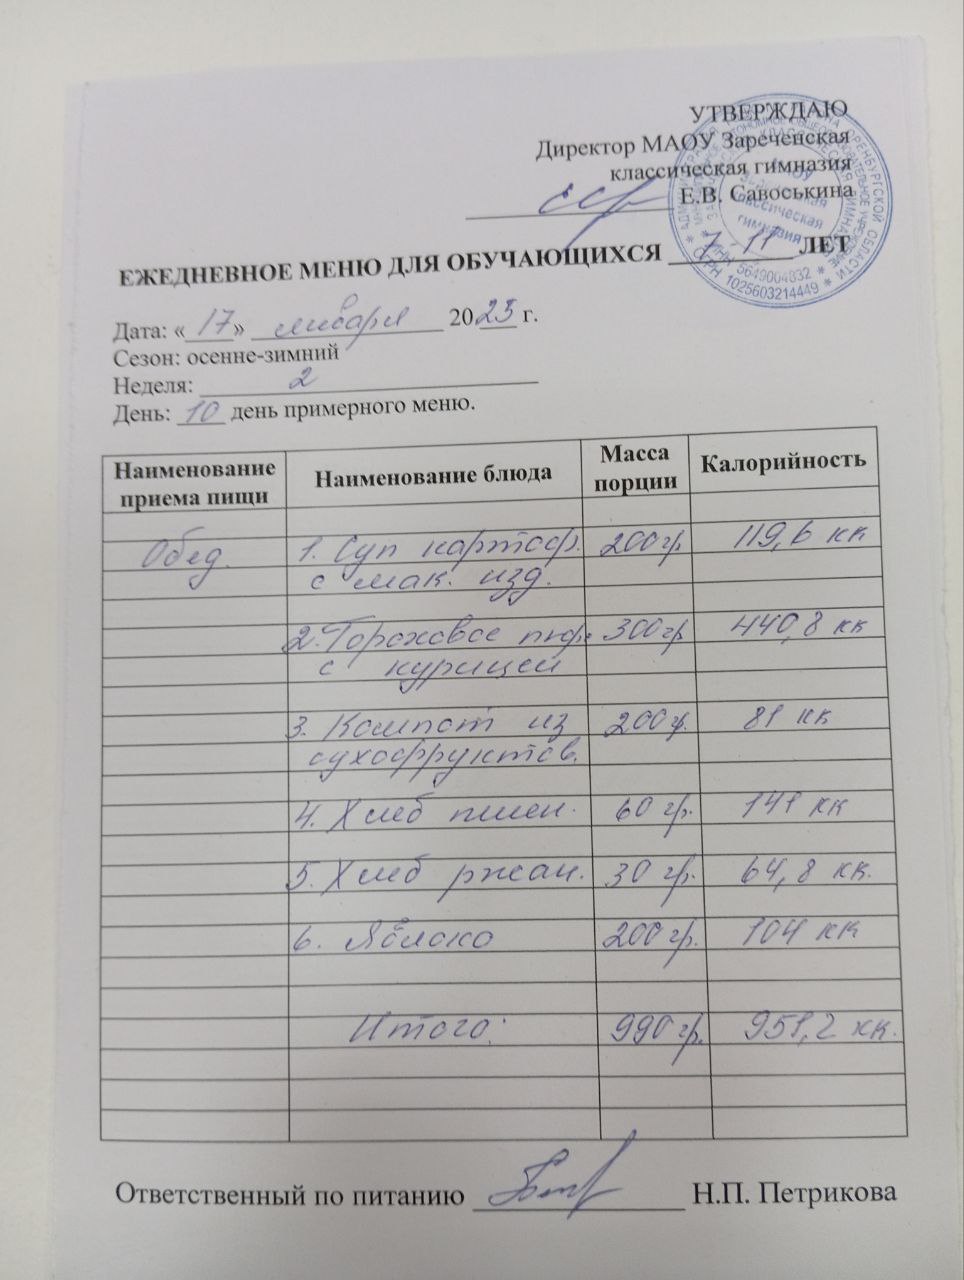 УТВЕРЖДАЮ
Директор МАОУ Зареченская
классическая гимназия
Е.В. Савоськина
ЕЖЕДНЕВНОЕ МЕНЮ ДЛЯ ОБУЧАЮЩИХСЯ 7-11 ЛЕТ
Дата: «17» января 2023 г.
Сезон: осенне-зимний
Неделя: 2
День: 10 день примерного меню.
Наименование приема пищи Наименование блюда Масса порции Калорийность
Обед. 1. Суп картоф. 200 гр. 119,6 кк
с мак. изд.
2. Гороховое пюре 300 гр 440,8 кк
с курицей
3. Компот из 200 гр. 81 кк
сухофруктов.
4. Хлеб пшен. 60 гр. 141 кк
5. Хлеб ржан. 30 гр. 64,8 кк.
6. Яблоко 200 гр. 104 кк
Итого: 990 гр. 951,2 кк.
Ответственный по питанию Н.П. Петрикова
ОРЕНБУРГСКОЙ ОБЛАСТИ
ОГРН 1025603214449
ИНН 5649004832
классическая
гимназия